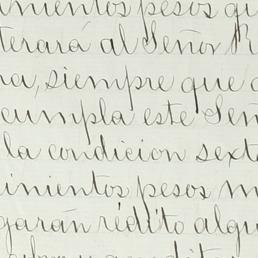 nientos pesos qu
terará al Señor R
na, siempre que
cumpla este Señ
la condicion sext
inientos pesos m
garán rédito algu